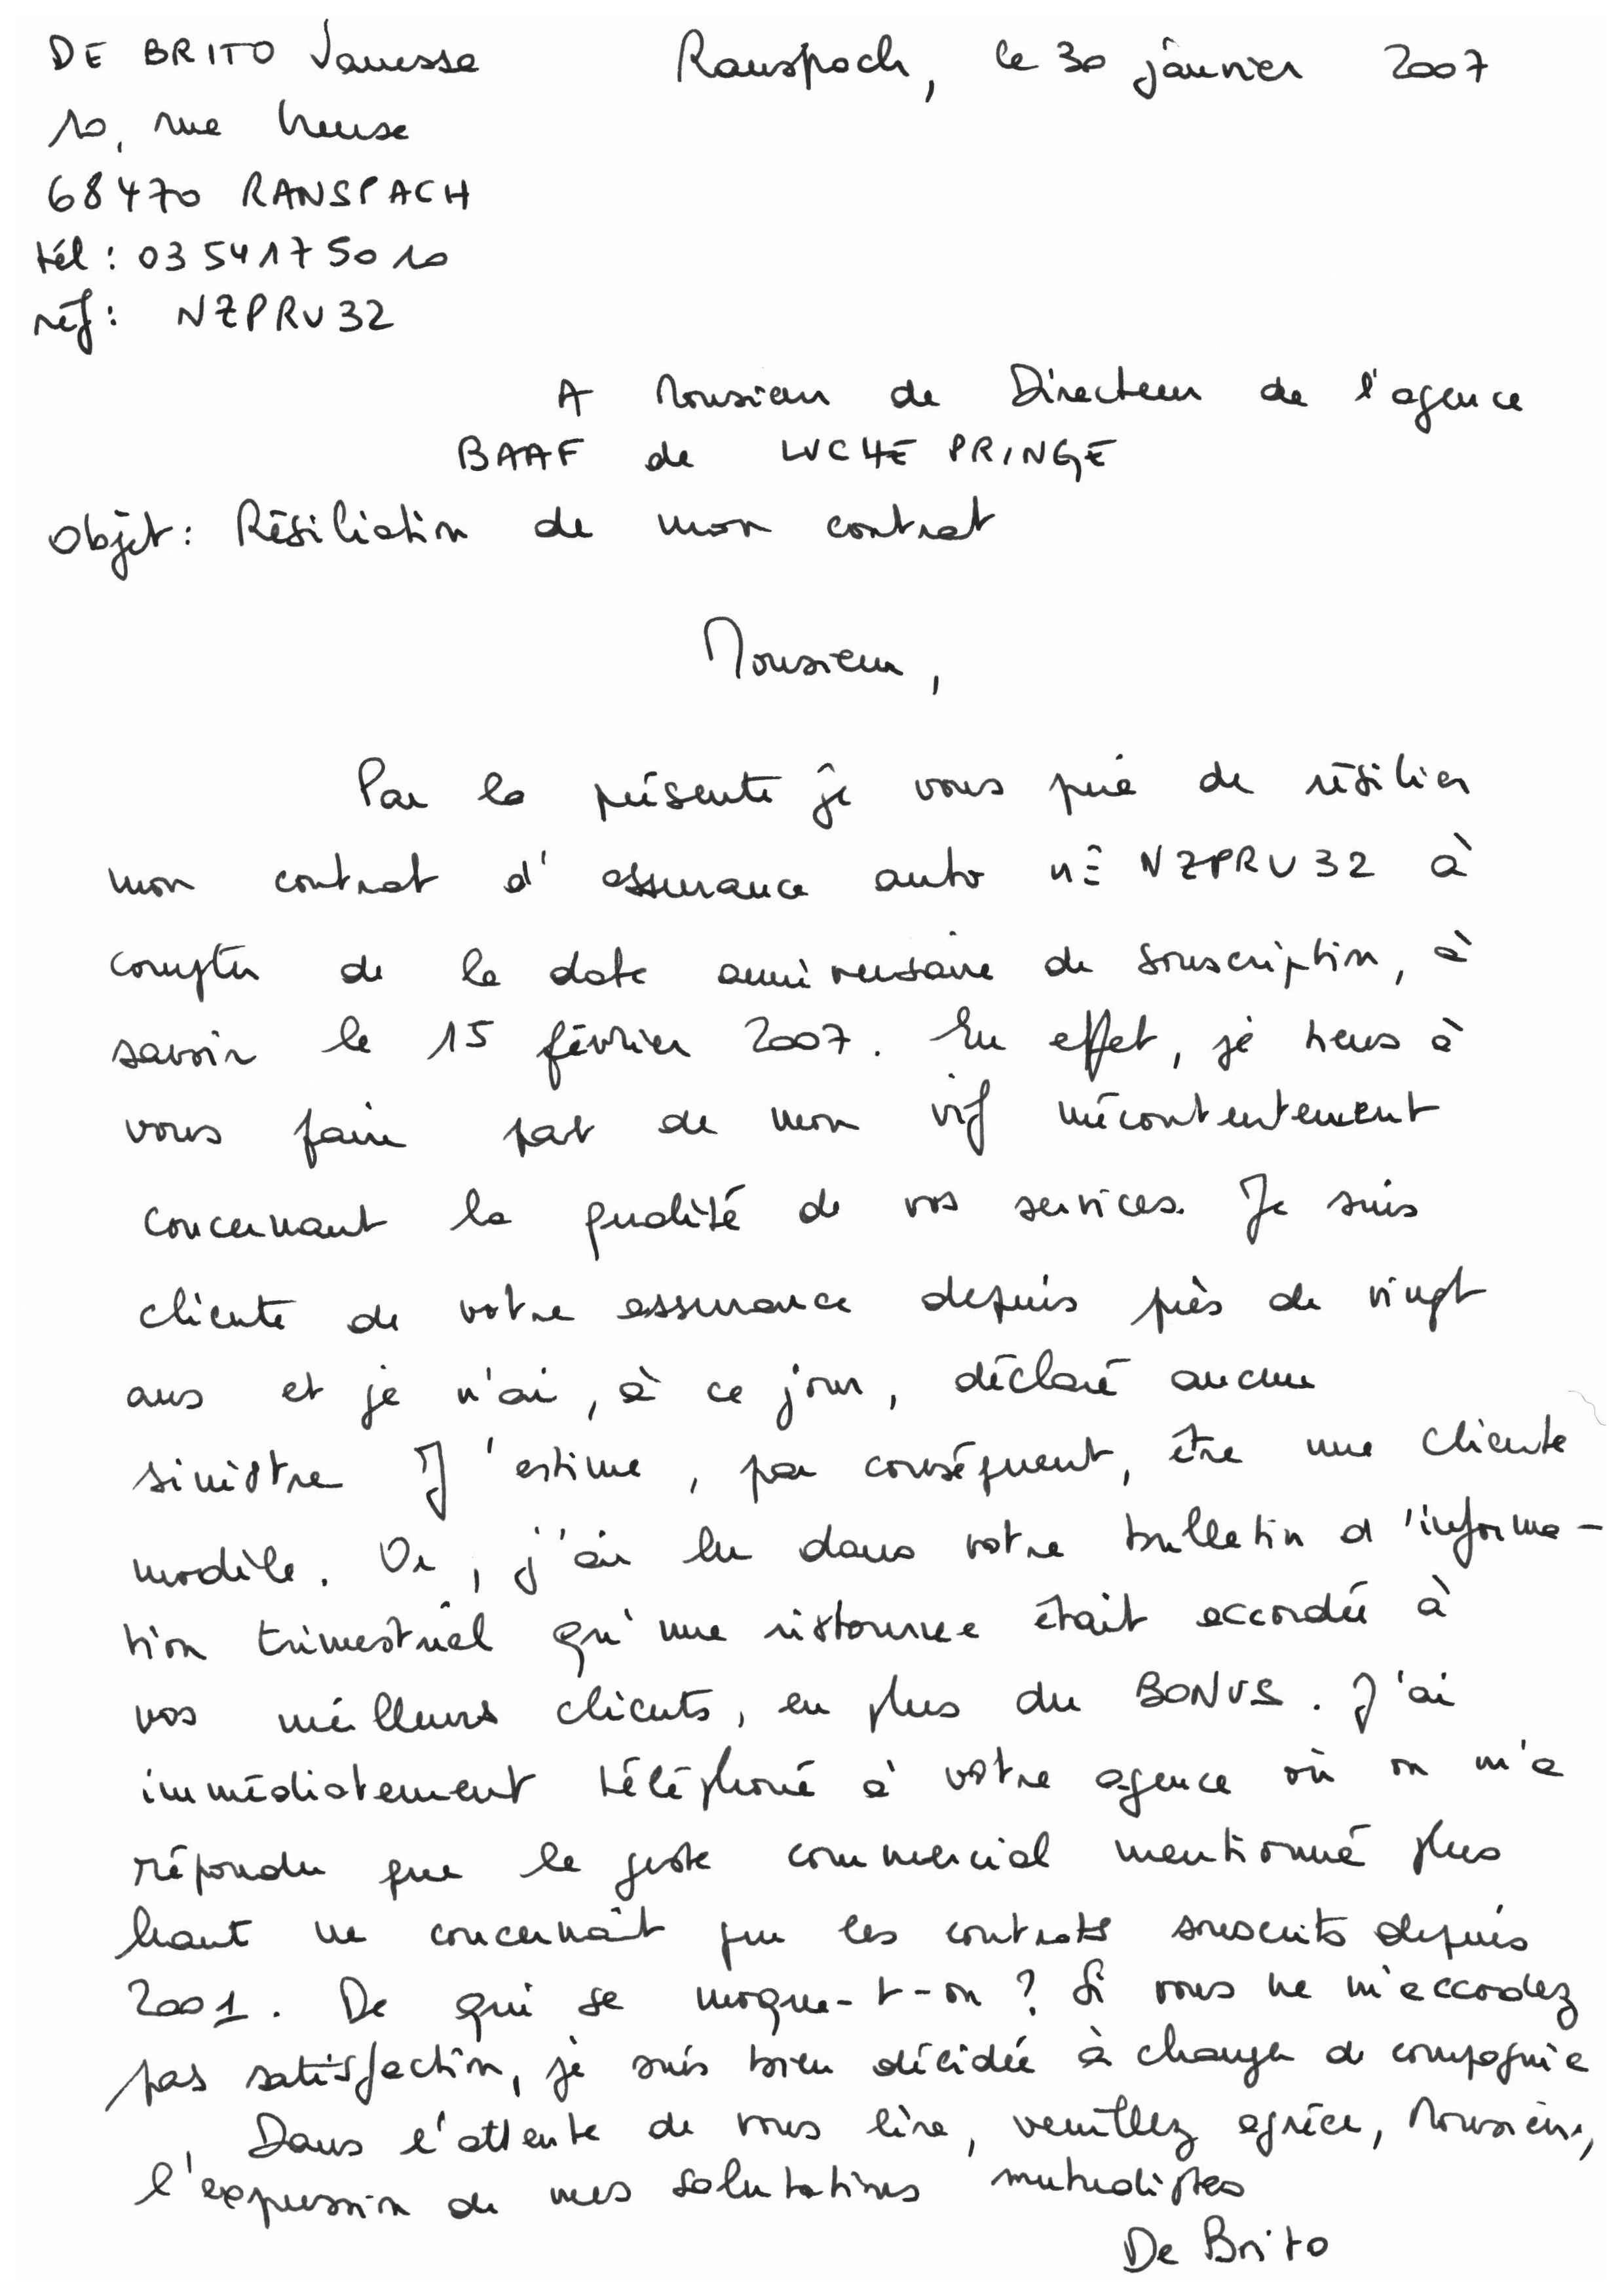 DE BRITO Vanessa
Ranspach, le 30 janvier 2007
10, rue heuse
68470 RANSPACH
tél : 03 54 17 50 10
réf : NZPRU32
A Monsieur de Directeur de l'agence
BAAF de LUCHE PRINGE
Objet : Résiliation de mon contrat
Monsieur,
Par la présente je vous prie de résilier
mon contrat d'assurance auto n° NZPRU32 à
compter de la date anniversaire de souscription, à
savoir le 15 février 2007. En effet, je tiens à
vous faire part de mon vif mécontentement
concernant la qualité de vos services. Je suis
cliente de votre assurance depuis près de vingt
ans et je n'ai, à ce jour, déclaré aucun
sinistre J'estime, par conséquent, être une cliente
modèle. Or, j'ai lu dans votre bulletin d'informa-
tion trimestriel qu'une ristournee était accordée à
vos meilleurs clients, en plus du BONUS. J'ai
immédiatement téléphoné à votre agence où on m'a
répondu que le geste commercial mentionné plus
haut ne concernait que les contrats souscrits depuis
2001. De qui se moque-t-on ? Si vous ne m'accordez
pas satisfaction, je suis bien décidée à changer de compagnie
Dans l'attente de vous lire, veuillez agréer, Monsieur,
l'expression de mes salutations mutualistes
De Brito